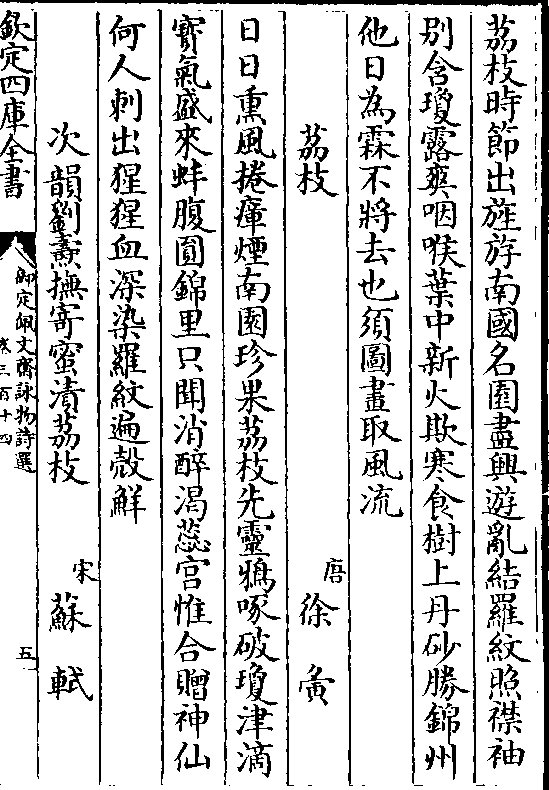 荔枝時節出旌斿南國名園盡興遊亂結羅紋照襟袖
别含瓊露爽咽喉葉中新火欺寒食樹上丹砂勝錦州
他日為霖不將去也須圖畫取風流
荔枝 唐 徐夤
日日熏風捲瘴煙南園珍果荔枝先靈鵶啄破瓊津滴
寳氣盛來蚌腹圓錦里只聞消醉渴蕊宫惟合贈神仙
何人刺出猩猩血深染羅紋遍殻鮮
次韻劉燾撫寄蜜漬荔枝 宋 蘇軾
欽定四庫全書 御定佩文齋詠物詩選 卷三百十四 五